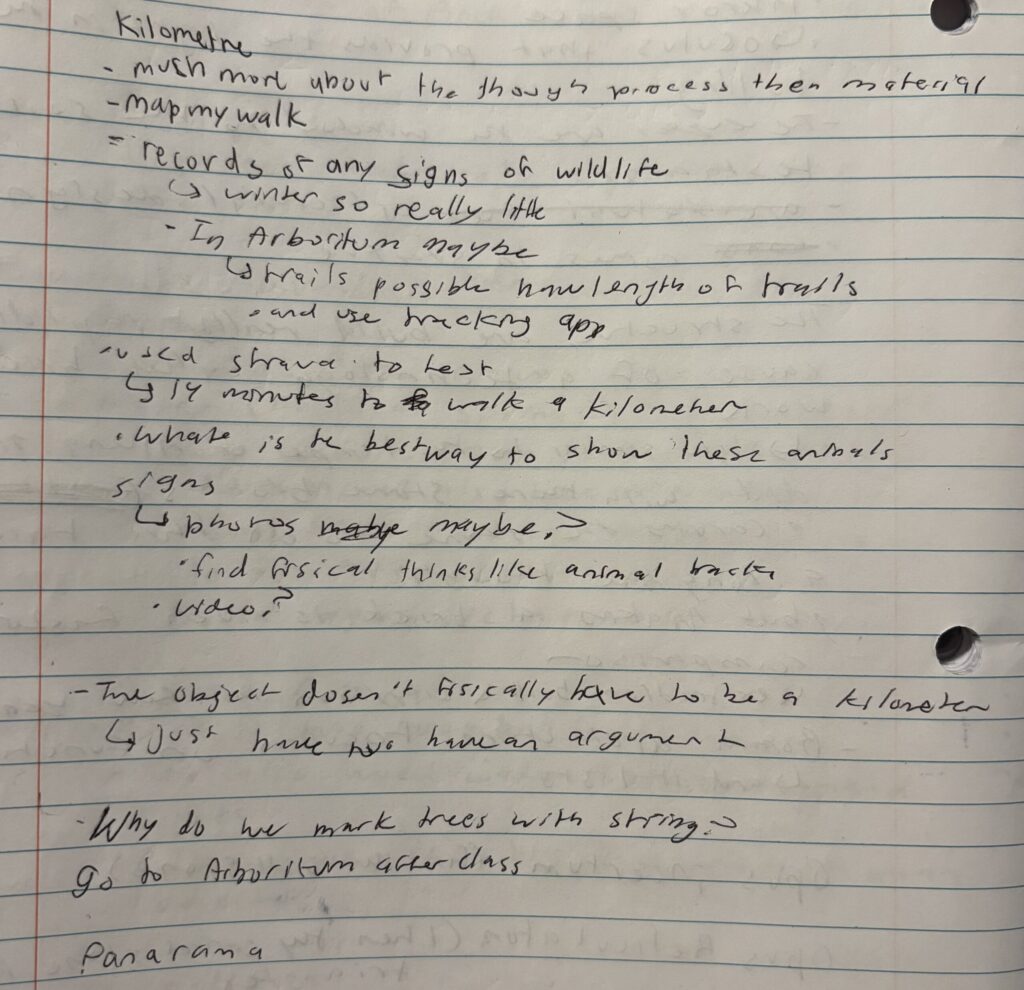 Kilometre
- much more about the though process then material
- map my walk
- records of any signs of wildlife
↳ winter so really little
- In Arboritum maybe
↳ trails possible how length of trails
• and use tracking app
• used strava to test
↳ 14 minutes to walk a kilometer
• What is the best way to show these animals
signs
↳ photos maybe?
• find fisical thinks like animal tracks
• video?
- The object doesn't fisically have to be a kilometer
↳ just have have an argument
- Why do we mark trees with string?
go to Arboritum after class
Panarama